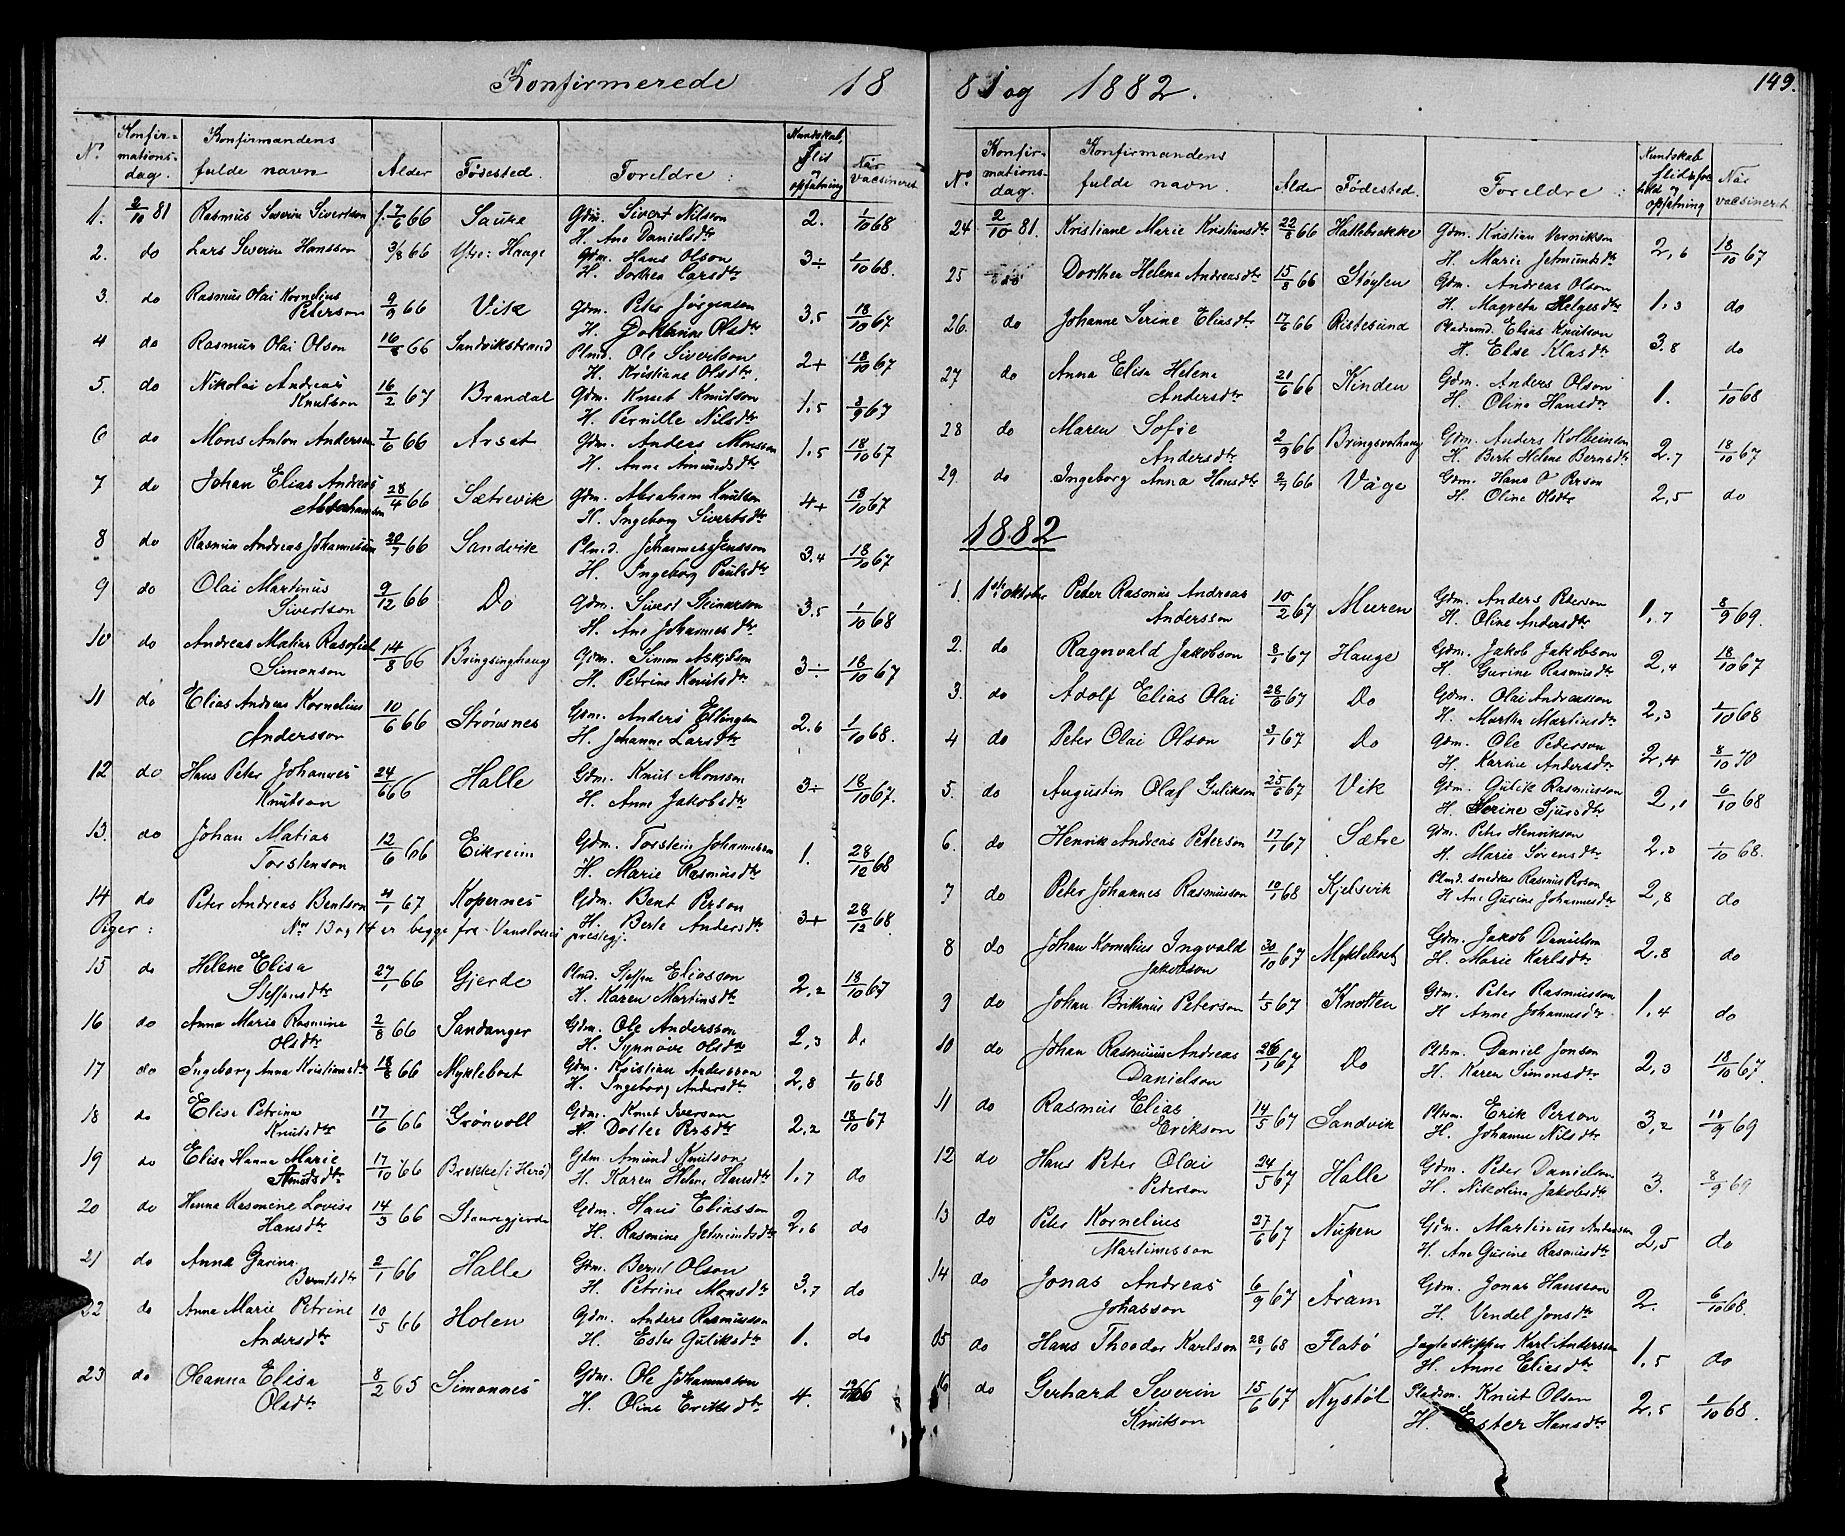 Konfirmerede 18
No Konfirmations-dag. Konfirmandens fulde navn Alder Fødested. Foreldre: Kundskab, flid og opfatning Når vacsineret
1. 2/10 81 Rasmus Severin Sivertson f. 7/6 66 Saure Gdm. Sivert Nilsson 2. 1/10 68
H. Ane Danielsdtr
2. do Lars Severin Hansson 3/8 66 Ytre: Hauge Gdm. Hans Olson 3÷ 1/10 68.
H. Dorthea Larsdtr
3. do Rasmus Olai Kornelius 9/9 66 Vik Gdm. Peter Jørgensen 3,5 18/10 67
Peterson H. Olsdtr
4 do Rasmus Olai Olson 16/8 66 Sandvikstrand Plmd. Ole Sivertson 2+ 18/10 67
H. Kristiane Olsdtr.
5. do Nikolai Andreas 16/2 67 Brandal Gdm. Knut Knutson 1,5 3/9 67
Knutson H. Pernille Nilsdtr
6 do Mons Anton Anderson 7/6 66 Arset Gdm. Andreas Monsson 1,5 18/10 67
H. Anne Amundsdtr
7 do Johan Elias Andreas 28/4 66 Sætrevik Gdm. Abraham Knutson 4+ 18/10 67
Abrahamson H. Ingeborg Sivertsdtr
8 do Rasmus Andreas Johannesson 20/7 66 Sandvik Plmd. Johannes Jensson 3.4 18/10 67
H. Ingeborg Paulsdtr
9 do Olai Martinus 9/12 66 Do Gdm. Sivert Steinarson 3.5 1/10 68
Sivertson H. Ane Johannesdtr
10 do Andreas Matias 14/8 66 Bringsinghaug Gdm. Simon Askjelson 3÷ 18/10 67
Simonson H. Petrine Knutsdtr
11 do Elias Andreas Kornelius 10/6 66 Strømsnes Gdm. Anders Ellingsen 2.6 1/10 68.
Andersson H. Johanne Larsdtr
12 do Hans Peter Johannes 24/6 66 Halle Gdm. Knut Monsson 3÷ 18/10 67.
Knutson H. Anne Jakobsdtr
13. do Johan Matias 12/6 66 Eikreim Gdm. Torstein Johannesson 1. 28/12 68
Torstenson H. Marie Rasmusdtr
14 do Peter Andreas Bentson 4/1 67 Kopernes Gdm. Bent Person 3+ 28/12 68.
Piger: No 13 og 14 er begge fra Vanelvens prestegj. H. Berte Andersdtr
15 do Helene Elisa 27/1 66 Gjerde Plmd. Steffen Eliasson 2,2 18/10 67
Steffensdtr H. Karen Martinsdtr
16 do Anna Marie Rasmine 2/8 66 Sandanger Gdm. Ole Andersson 2,3 do
Olsdtr H. Synnøve Olsdtr
17 do Ingeborg Anna Kristiansdtr 18/8 66 Myklebost Gdm. Kristian Andersson 2,8 1/10 68
H. Ingeborg Andersdtr
18 do Elise Petrina 17/6 66 Grønvoll Gdm. Knut Iverson 2,2 18/10 67
Knutsdtr H. Dortea Persdtr
19 do Elisa Hanna Marie 17/10 66 Brekke (i Herø) Gdm Amund Knutson 1,7 do
Amdsdtr H. Karen Helene Hansdtr
20 do Hanna Rasmine Lovise 14/3 66 Stauregjerde Gdm. Hans Eliasson 2,6 do
Hansdtr H. Rasmine Jetmundsdtr
21 do Anna Gurina 2/1 66 Halle Gdm. Bernt Olson 3,7 do
Berntsdtr H. Petrine Monsdtr
22 do Anne Marie Petrine 10/5 66 Holen Gdm. Anders Rasmusson 1. do
Andersdtr H. Ester Guliksdtr
23 do Oleanna Elisa 8/2 65 Simonnes Gdm. Ole Johannesson 4. 66
Olsdtr H. Oline Eriksdtr
81 og 1882. 149.
No Konfirmations-dag. Konfirmandens fulde navn. Alder Fødested. Foreldre: Kundskab flid og opfatning Når vacsineret
24 2/10 81. Kristiane Marie Kristiansdtr 22/8 66 Hattebrekke Gdm. Kristian Vernikson 2,6 18/10 67
H. Marie Jetmundsdtr
25 do Dorthea Helena Andreasdtr 15/8 66 Støylen Gdm. Andreas Olson 1.3 do
H. Magreta Helgesdtr
26. do Johanne Serine Eliasdtr 17/6 66 Ristesund Pladsmd. Elias Knutson 3.8 do
H. Else Klasdtr
27 do Anna Elisa Helena 21/6 66 Kinden Gdm. Anders Olson 1. 1/10 68
Andersdtr H. Oline Hansdtr
28 do Maren Sofie 2/9 66 Bringsvorhaug Gdm. Anders Kolbeinson 2.7 18/10 67
Andersdtr H. Berte Helene Berntsdtr
29. do Ingeborg Anna Hansdtr 2/7 66 Våge Gdm. Hans O Person 2,5 do
H. Oline Olsdtr
1882
1. 1ste oktober Peter Rasmus Andreas 10/2 67 Muren Gdm. Anders Peterson 1,7 8/9 69.
Andersson H. Oline Andersdtr
2. do Ragnvald Jakobson 8/1 67 Hauge Gdm. Jakob Jakobson 2,4 18/10 67
H. Gurine Rasmusdtr
3. do Adolf Elias Olai 28/6 67 Do Gdm. Olai Andreasson 2,3 1/10 68
H. Marthe Martinusdtr
4 do Peter Olai Olson 3/1 67 Do Gdm. Ole Pederson 2,4 8/10 70
H. Karine Andersdtr
5. do Augustin Olaf Gulikson 25/6 67 Vik Gdm. Gulik Rasmusson 2,1 6/10 68
H. Serine Sjursdtr
6. do Henrik Andreas Peterson 17/1 67 Sætre Gdm. Peter Henrikson 2.3 1/10 68.
H. Marie Sørensdtr
7 do Peter Johannes Rasmusson 10/1 68 Kjelsvik Plmd. snedker Rasmus Person 2,8 do
H Ane Gurine Johannesdtr
8 do Johan Kornelius Ingvald 30/10 67 Myklebost Gdm. Jakob Danielson 2.8 do
Jakobson H. Marie Karlsdtr
9 do Johan Brikanus Peterson 1/5 67 Knotten Gdm. Peter Rasmusson 1.4 do
H Anne Johannesdtr
10 do Johan Rasmus Andreas 26/1 67 Do Pldsm. Daniel Jonson 2,3 18/10 67.
Danielson H. Karen Simonsdtr
11 do Rasmus Elias 14/5 67 Sandvik Pldsm. Erik Person 3,2 11/9 69
Erikson H. Johanne Nilsdtr
12 do Hans Peter Olai 24/5 67 Halle Gdm. Peter Danielson 3. 8/9 69
Pederson H. Nikoline Jakobsdtr
13 do Peter Kornelius 27/6 67 Nupen Gdm. Martinus Andersson 2,5 do
Martinusson H. Ane Gurine Rasmusdtr
14 do Jonas Andreas 6/9 67 Åram Gdm. Jonas Hansson 2. 6/10 68.
Johasson H. Vendel Jonsdtr
15 do Hans Theodor Karlson 28/1 68 Flatø Jagteskipper Karl Andersson 1,5 do
H. Anne Eliasdtr
16 do Gerhard Severin 15/6 67 Nystøl Pladsm. Knut Olson 2,5 1/10 68.
Knutson H. Ester Hansdtr